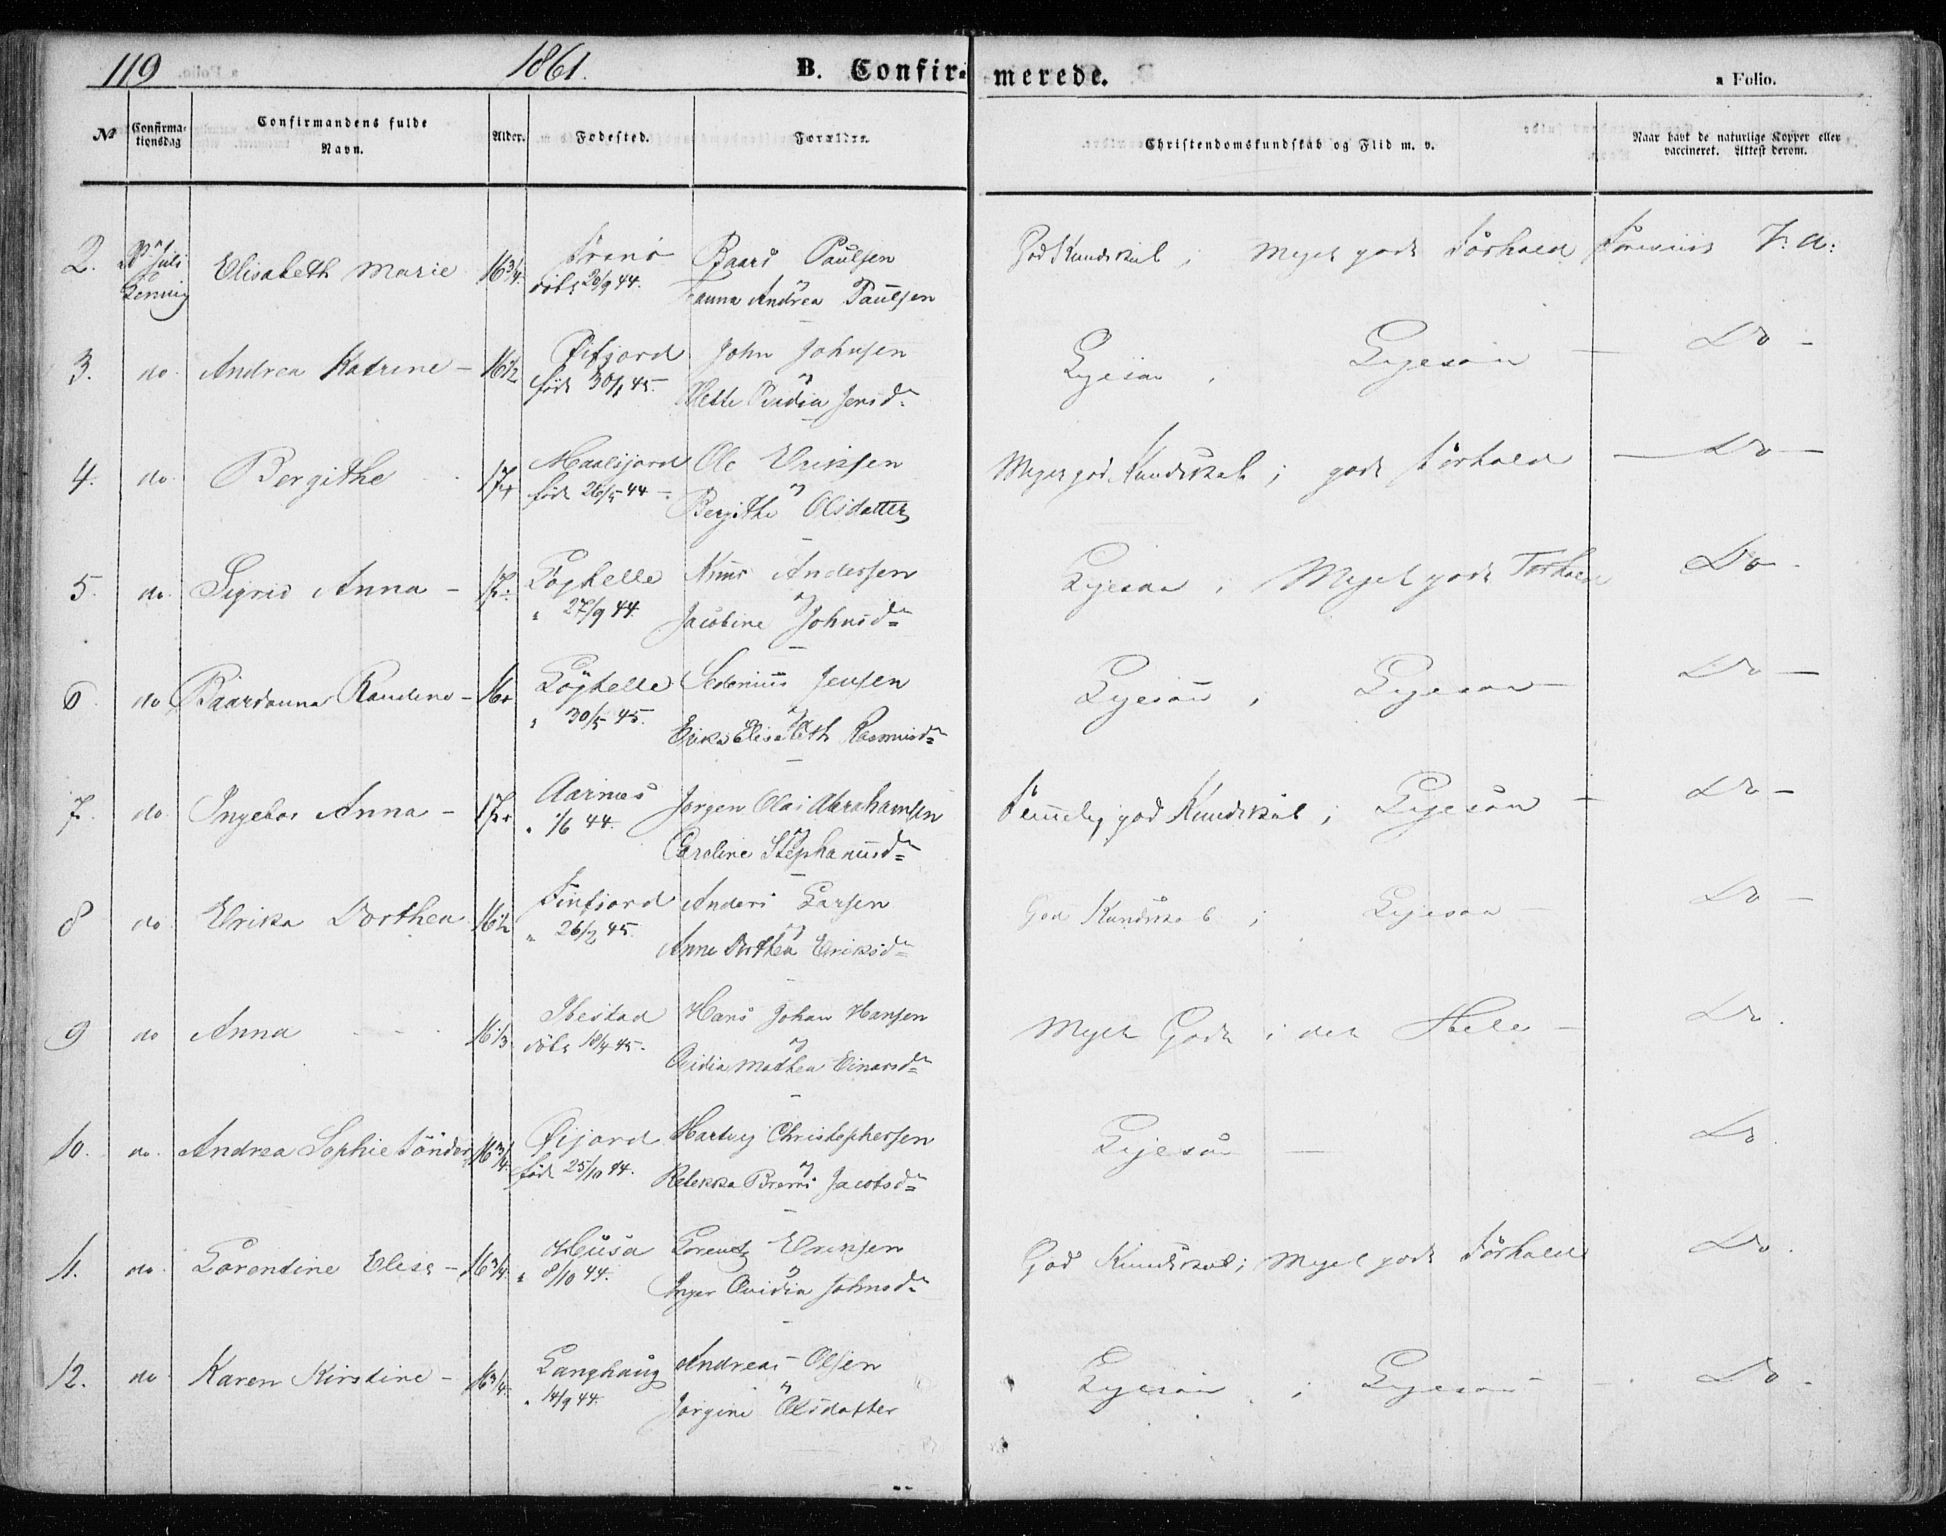 119 1861. B. Confirmerede. a Folio.
No Confirmationsdag Confirmandens fulde Navn. Alder. Fødested. Forældre. Christendomskundskab og Flid m. v. Naar havt de naturlige Kopper eller vaccineret. Attest derom.
2. Juli Elisabeth Marie 16 3/4 Tranø Baard Paulsen God Kundskab; Meget godt Forhold
døbt 20/9 44. Hanna Andrea Paulsen
3. do Andrea Katrine - 16 1/2 Øifjord John Johnsen Ligesaa; Ligesaa - Do -
født 30/1 45. Ovidia Jensd.
4. do Bergithe 17 Maalsjord Ole Eriksen Meget god Kundskab; godt Forhold - Do -
født 26/5 44 - Bergithe Olsdatter
5. do Sigrid Anna - 17. Løghelle Andersen Ligesaa; Meget godt Forhold Do -
" 27/9 44. Jacobine Johnsd.
6 do Baardauna Randine - 16 Løghelle Sedenius Jensen Ligesaa; Ligesaa - Do -
" 30/5 45. Erika Elisabeth Rasmusd.
7. do Ingebor Anna - 17 Aarnæs Jørgen Olai Abrahamsen Temmelig god Kundskab; Ligesaa - Do -
" 1/6 44. Caroline Stephanusd.
8 do Erika Dorthea 16 1/2 Finfjord Anders Larsen God Kundskab; Ligesaa - Do -
" 26/2 45. Anne Dorthea Eriksd.
9 do Anna 16 1/3 Ibestad Hans Johan Hansen Meget Godt i det Hele - Do.
døbt 18/4 45. Ovidia Mathea Einarsd.
10. do. Andrea Sophie Tønder 16 3/4 Øijord Hartvig Christophersen Ligesaa - Do.
født 25/10 44. Rebekka Jacobsd.
11. do. Lorentine Elise - 16 3/4. Husa Lorentz Eriksen God Kundskab; Meget godt Forhold Do.
" 8/10 44. Inger Ovidia Johnsd.
12. do Karen Kirstine - 16 3/4 Langhaug Andreas Olsen Ligesaa; Ligesaa - Do -
" 14/9 44. Jørgine Olsdatter